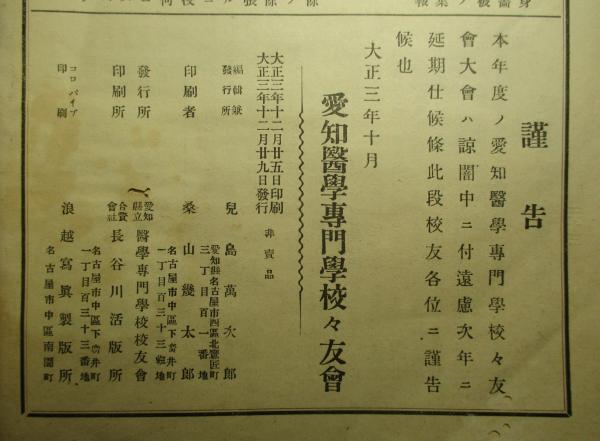 謹告
本年度ノ愛知醫學專門學校々友
會大會ハ諒闇中ニ付遠慮次年ニ
延期仕候條此段校友各位ニ謹告
候也
大正三年十月
愛知醫學專門學校々友會
大正三年十二月廿五日印刷
大正三年十二月廿九日發行
非賣品
編輯兼
發行所
兒島萬次郎
愛知縣名古屋市西區北鷹匠町
三丁目百一番地
印刷者
桑山幾太郎
名古屋市中區下前津町
一丁目百三十三番地
發行所
愛知
縣立
醫學專門學校校友會
印刷所
合資
會社
長谷川活版所
一丁目百三十三番地
コロタイプ
印刷
浪越寫眞製版所
名古屋市中區南園町